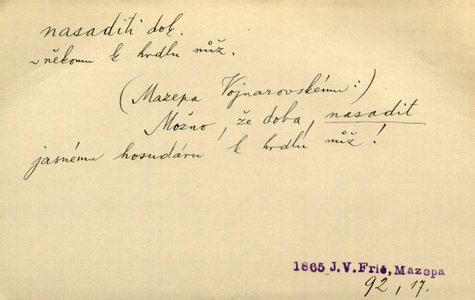 nasaditi dok.
~ někomu k hrdlu nůž.
(Mazepa Vojnarovskému:)
Možno, že doba, nasadit
jasnému hosudáru k hrdlu nůž!
1865 J.V.Frič, Mazepa
92, 17.